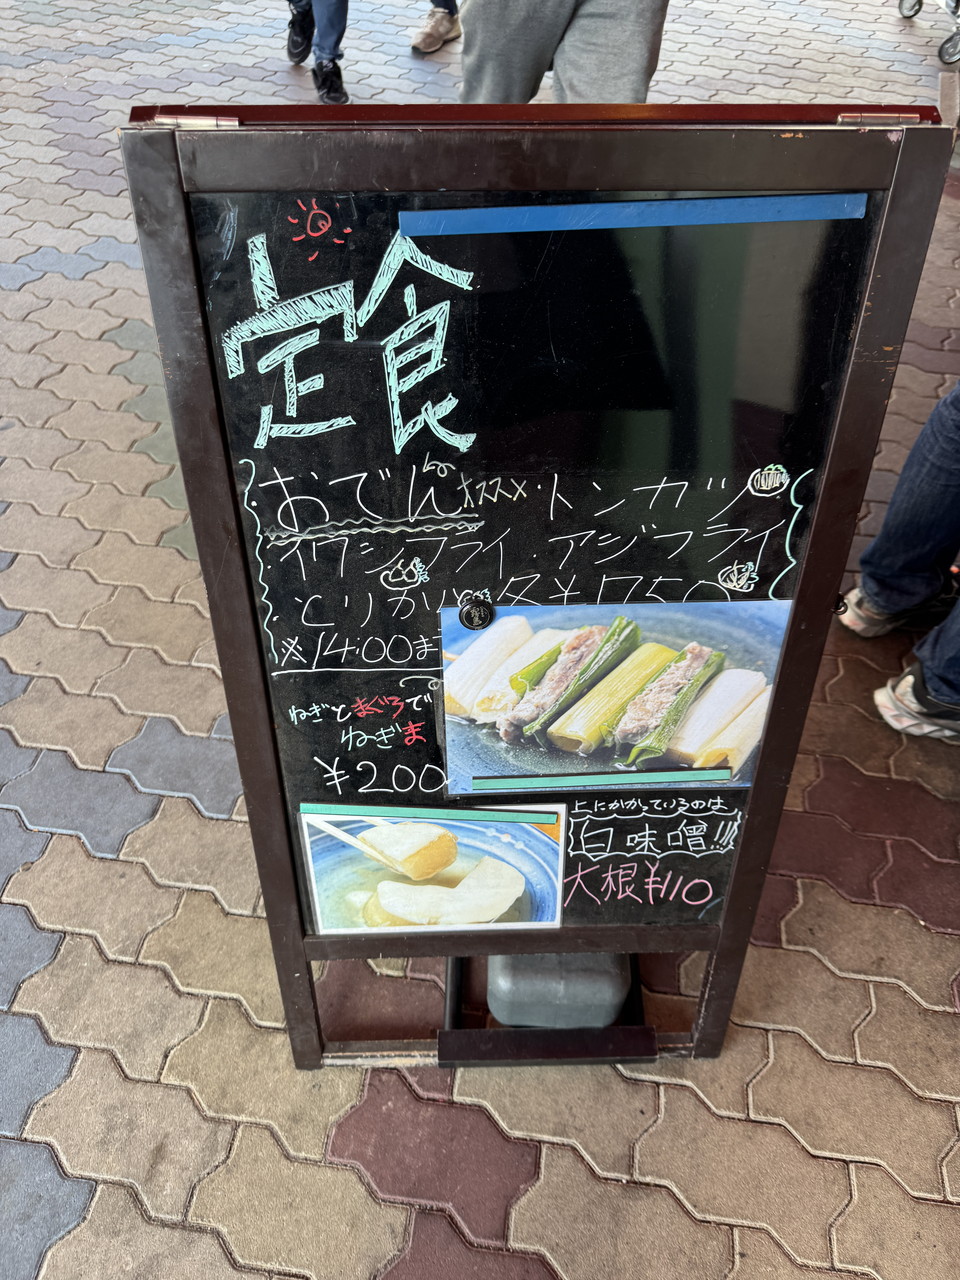 定食
おでん オススメ・トンカツ
・イワシフライ・アジフライ
・とりから 各¥750
※14:00ま
ねぎとまぐろで
ねぎま
¥200
上にかかっているのは
白味噌!!!
大根¥110